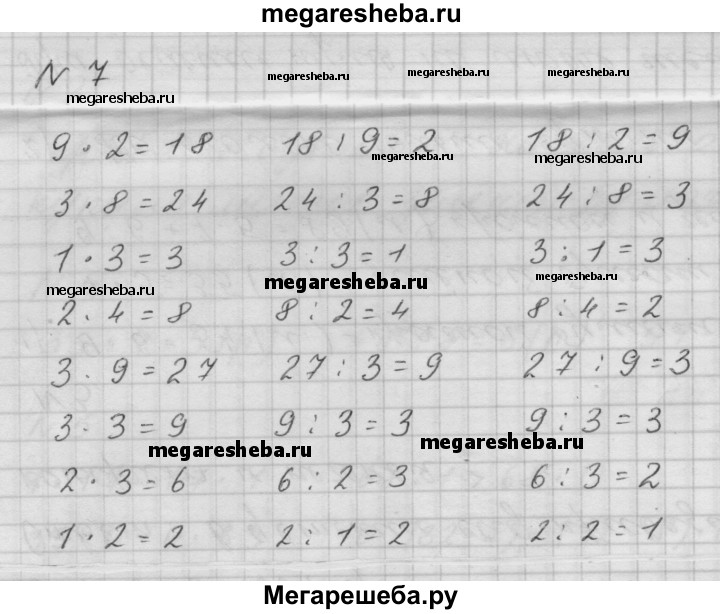 megaresheba.ru
N 7
megaresheba.ru megaresheba.ru megaresheba.ru
megaresheba.ru
9 · 2 = 18 18 : 9 = 2 18 : 2 = 9
megaresheba.ru megaresheba.ru
3 · 8 = 24 24 : 3 = 8 24 : 8 = 3
1 · 3 = 3 3 : 3 = 1 3 : 1 = 3
megaresheba.ru megaresheba.ru megaresheba.ru
2 · 4 = 8 8 : 2 = 4 8 : 4 = 2
3 · 9 = 27 27 : 3 = 9 27 : 9 = 3
3 · 3 = 9 9 : 3 = 3 9 : 3 = 3
megaresheba.ru megaresheba.ru
2 · 3 = 6 6 : 2 = 3 6 : 3 = 2
1 · 2 = 2 2 : 1 = 2 2 : 2 = 1
Мегарешеба.ру